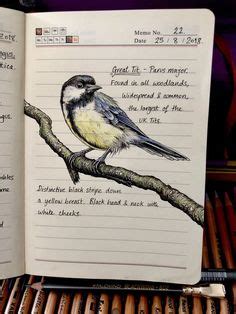 Memo No. 22.
Date 25 / 8 / 2018
Great Tit - Parus major.
Found in all woodlands,
Widespread & common,
the largest of the
UK Tits.
Distinctive black stripe down
a yellow breast. Black head & neck with
white cheeks.
2018.